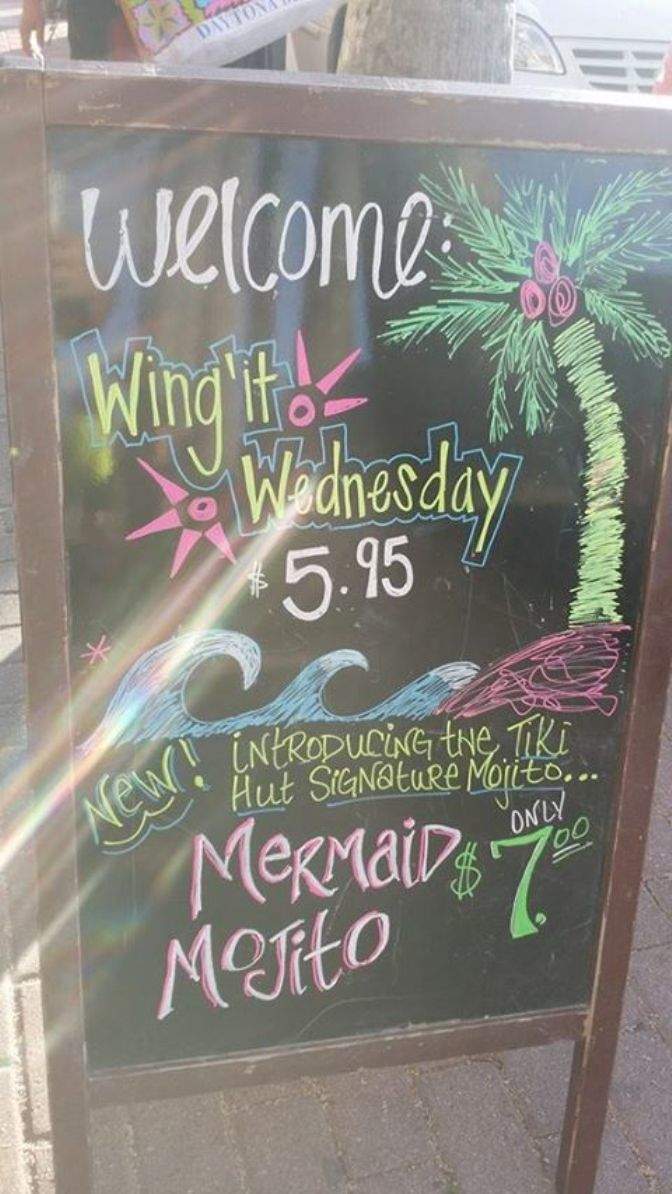 DAYTONA
Welcome:
Wing'it
Wednesday
$5.95
New! iNtRODUCiNG tHe TiKi
Hut SiGNatuRe Mojito...
ONLY
MeRMaiD $7.00
MoJito